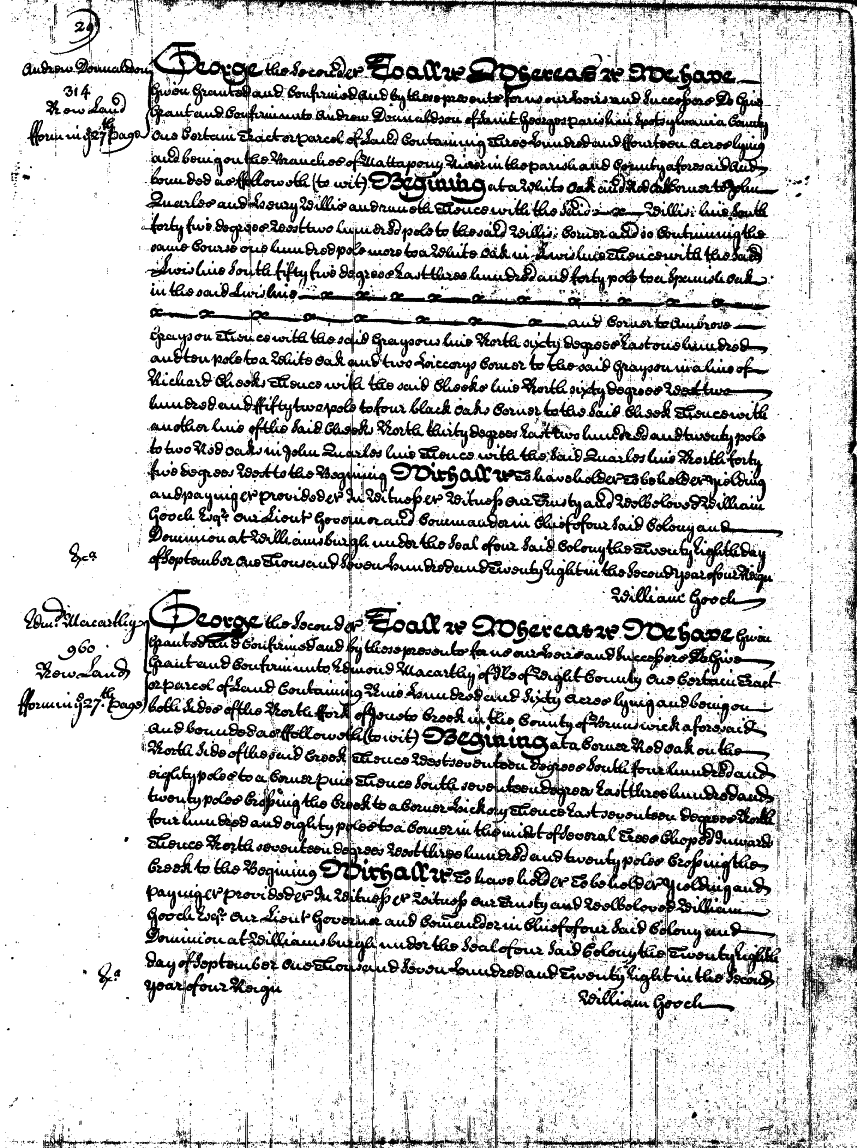 20
Andrew Donnaldson
314
New Land
fform in ye 27th page
George the Second &c To all &c Whereas &c We have
Given Granted and Confirmed and by these presents for us our heirs and Successors Do Give
Grant and Confirm unto Andrew Donaldson of Saint Georges parish in Spotsylvania County
One Certain Tract or parcel of Land Containing Three hundred and ffourteen Acres lying
and being on the Branches of Mattapony River in the parish and County aforesaid And
bounded as followeth (to wit) Begining at a White Oak and Red Oak Corner to John
Quarles and Henry Willis and runeth Thence with the said Willis's line South
forty five degrees West two hundred pole to the said Willis's Corner and so Continuing the
same Course one hundred pole more to a White Oak in Lewis line Thence with the said
Lewis line South fifty five degrees East three hundred and forty pole to a Spanish Oak
in the said Lewis line
and Corner to Ambrose
Grayson Thence with the said Graysons line North sixty degrees East one hundred
and ten pole to a White Oak and two Hiccorys Corner to the said Grayson in a line of
Richard Cheeks Thence with the said Cheeks line North sixty degrees West two
hundred and ffifty two pole to four black Oaks Corner to the Said Cheek Thence with
another line of the Said Cheeks North thirty degrees East two hundred and twenty pole
to two Red Oaks in John Quarles line Thence with the Said Quarles line North forty
five degrees West to the Begining With all &c To have hold &c To be held &c Yielding
and paying &c Provided &c In Witness &c Witness Our Trusty and Welbeloved William
Gooch Esqr. Our Lieut Governor and Commander in Chief of our Said Colony and
Dominion at Williamsburgh under the Seal of our Said Colony the Twenty Eighth day
of September One Thousand Seven hundred and Twenty Eight in the Second Year of our Reign
William Gooch
Edmd. Macarthy
960
New Land
fform in ye 27th page
George the Second &c To all &c Whereas &c We have Given
Granted and Confirmed and by these presents for us our heirs and Successors Do Give
Grant and Confirm unto Edmond Macarthy of Isle of Wight County One Certain Tract
or parcel of Land Containing Nine hundred and Sixty Acres lying and being on
both Sides of the North ffork of Creek in the County of Brunswick aforesaid
And bounded as ffolloweth (to wit) Begining at a Corner Red Oak on the
North Side of the said Creek Thence West seventeen degrees South four hundred and
eighty poles to a Corner pine Thence South seventeen degrees East three hundred and
twenty poles Crossing the Creek to a Corner hickory Thence East seventeen degrees North
four hundred and eighty poles to a Corner in the midst of Several Trees Choped Inwards
Thence North seventeen degrees West three hundred and twenty poles Crossing the
Creek to the Begining With all &c To have hold &c To be held &c Yielding and
paying &c Provided &c In Witness &c Witness Our Trusty and Welbeloved William
Gooch Esqr. Our Lieut Governor and Comander in Chief of our Said Colony and
Dominion at Williamsburgh under the Seal of our Said Colony the Twenty Eighth
day of September One Thousand Seven hundred and Twenty Eight in the Second
Year of our Reign
William Gooch